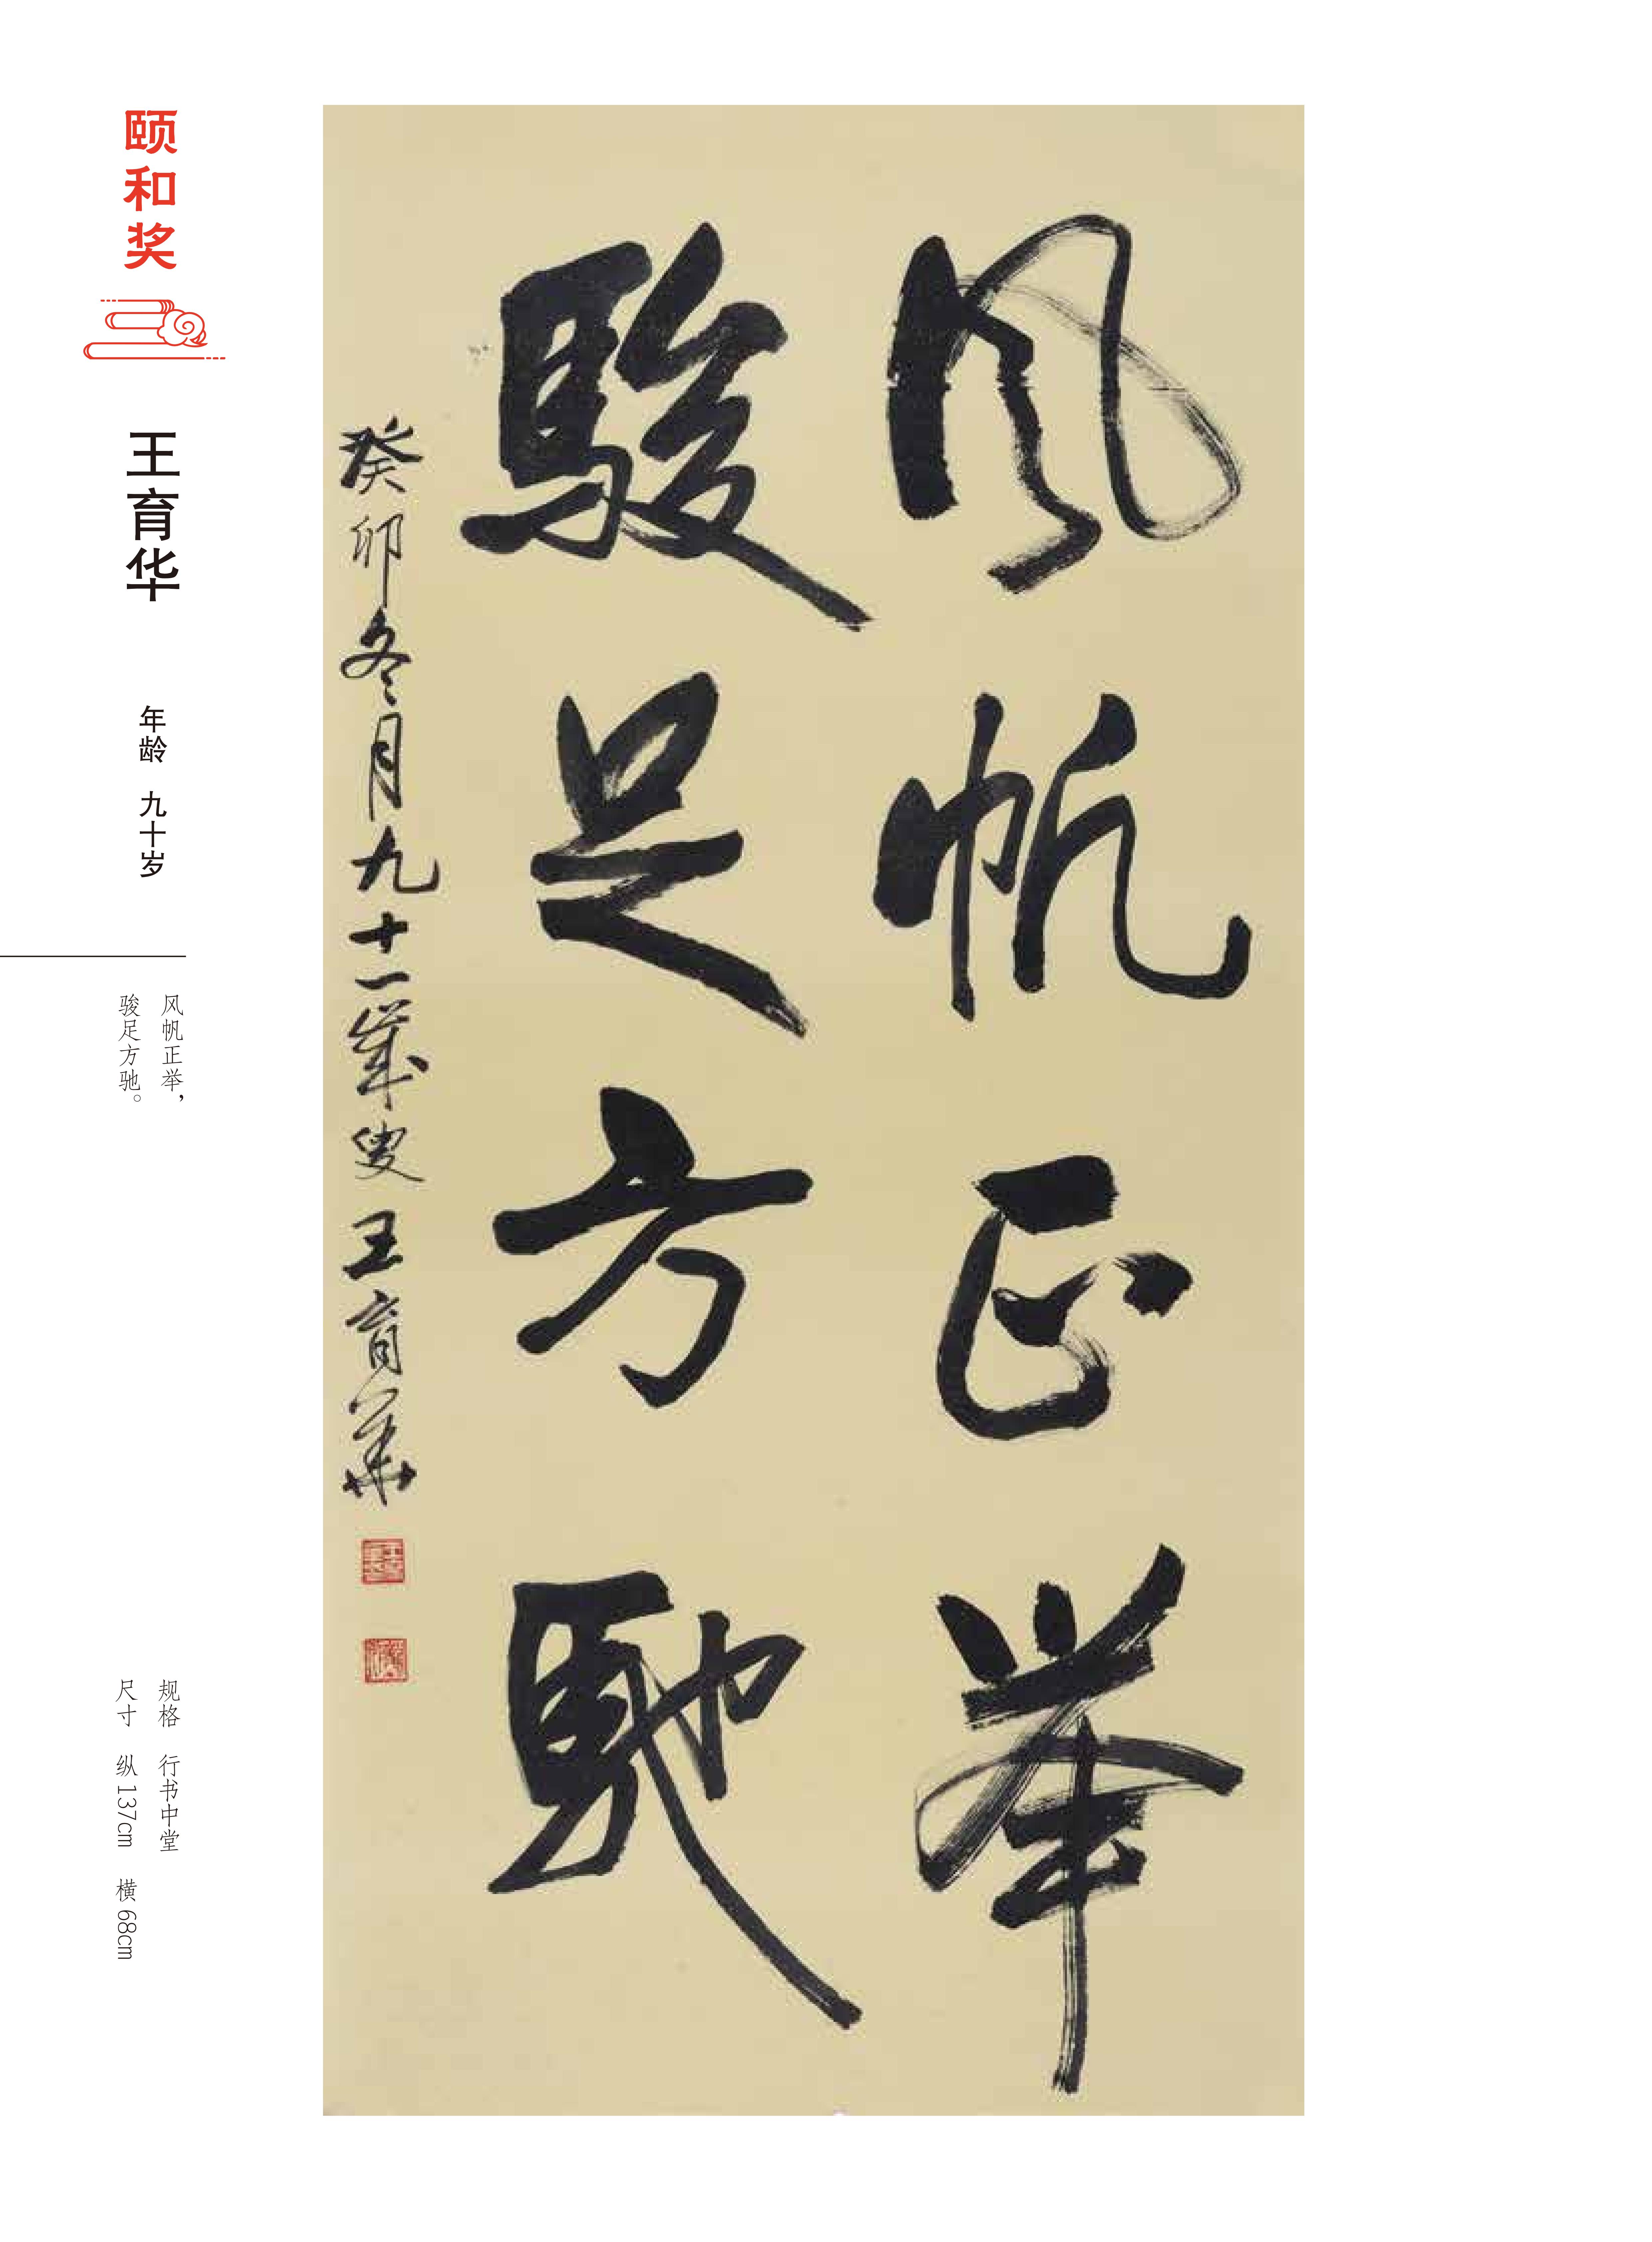 颐和奖
王育华
年龄 九十岁
风帆正举，
骏足方驰。
规格 行书中堂
尺寸 纵137cm 横68cm
风帆正举
駿足方馳
癸卯冬月九十一歲叟王育華